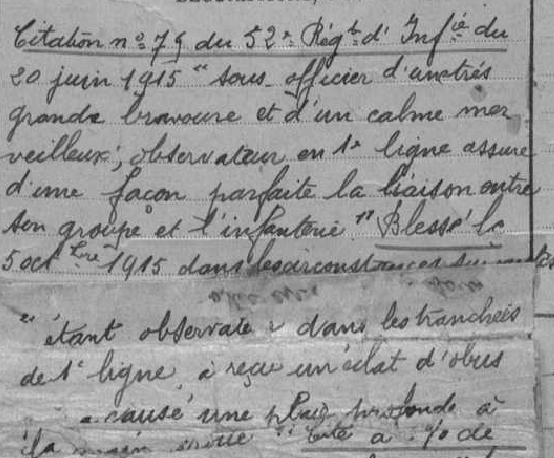 Citation n° 75 du 52e Régt d'Infie du
20 juin 1915 " sous-officier d'une très
grande bravoure et d'un calme mer
veilleux, observateur en 1e ligne assure
d'une façon parfaite la liaison entre
son groupe et l'infanterie " Blessé le
5 octbre 1915 dans les circonstances suivantes
" étant observateur dans les tranchées
de 1e ligne, a reçu un éclat d'obus
causé une plaie profonde à
la main